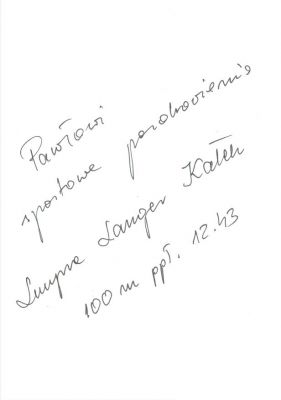 Pawłowi
sportowe pozdrowienia
Lucyna Langer Kałek
100 m ppł. 12.43